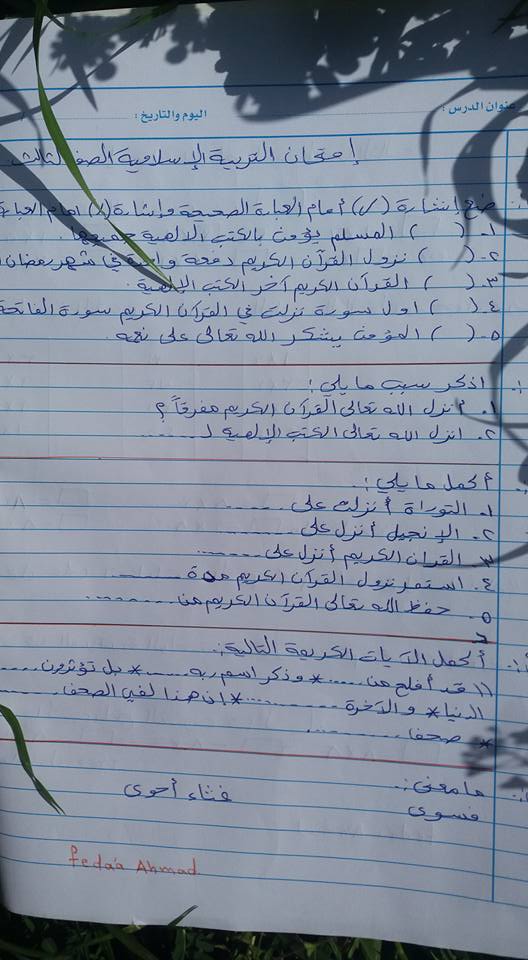 عنوان الدرس: اليوم والتاريخ:
إمتحان التربية الإسلامية الصف الثالث
ضع إشارة (✓) أمام العبارة الصحيحة وإشارة (x) امام العبارة
١- ( ) المسلم يؤمن بالكتب الالهية جميعها.
٢- ( ) نزول القرآن الكريم دفعة واحدة في شهر رمضان
٣- ( ) القرآن الكريم آخر الكتب الإلهية.
٤- ( ) اول سورة نزلت في القرآن الكريم سورة الفاتحة
٥- ( ) المؤمن يشكر الله تعالى على نعمه.
اذكر سبب ما يلي:
١. أنزل الله تعالى القرآن الكريم مفرقاً؟
٢. انزل الله تعالى الكتب الإلهية لـ ........
أكمل ما يلي:
١. التوراة أنزلت على ........
٢. الإنجيل أنزل على ........
٣. القرآن الكريم أنزل على ........
٤. استمر نزول القرآن الكريم مدة ........
٥. حفظ الله تعالى القرآن الكريم من ........
أكمل الآيات الكريمة التالية:
١) قد أفلح من ...... * وذكر اسم ربه ...... * بل تؤثرون ......
الدنيا * والآخرة ........ * إن هذا لفي الصحف ........
* صحف ........
ما معنى:
فسوى غثاء أحوى
fedaa Ahmad